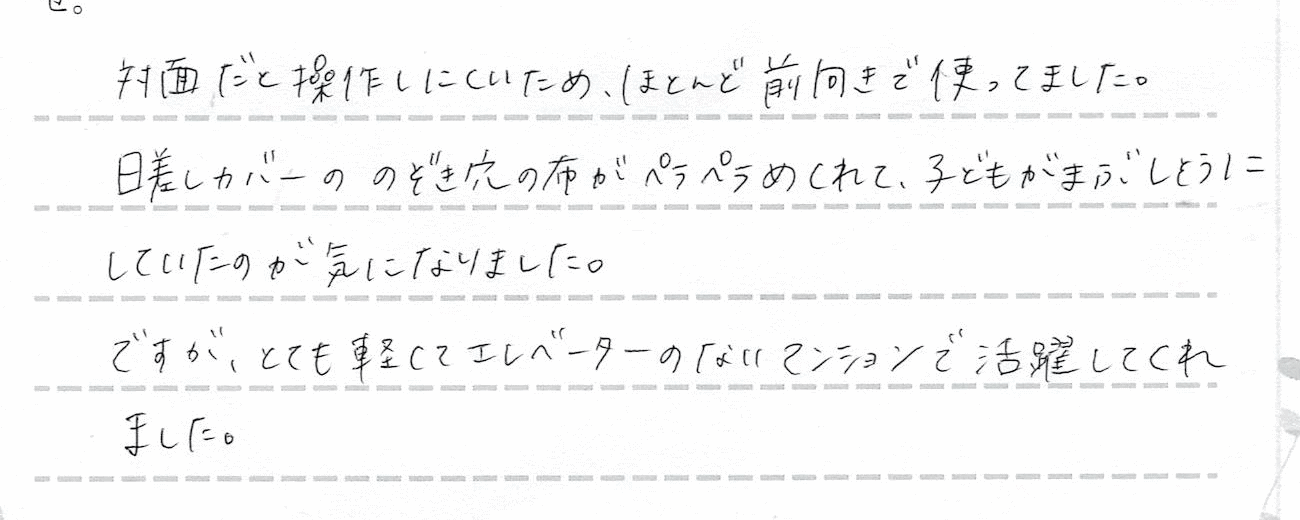 せ。
対面だと操作しにくいため、ほとんど前向きで使ってました。
日差しカバーののぞき穴の布がペラペラめくれて、子どもがまぶしそうに
していたのが気になりました。
ですが、とても軽くてエレベーターのないマンションで活躍してくれ
ました。